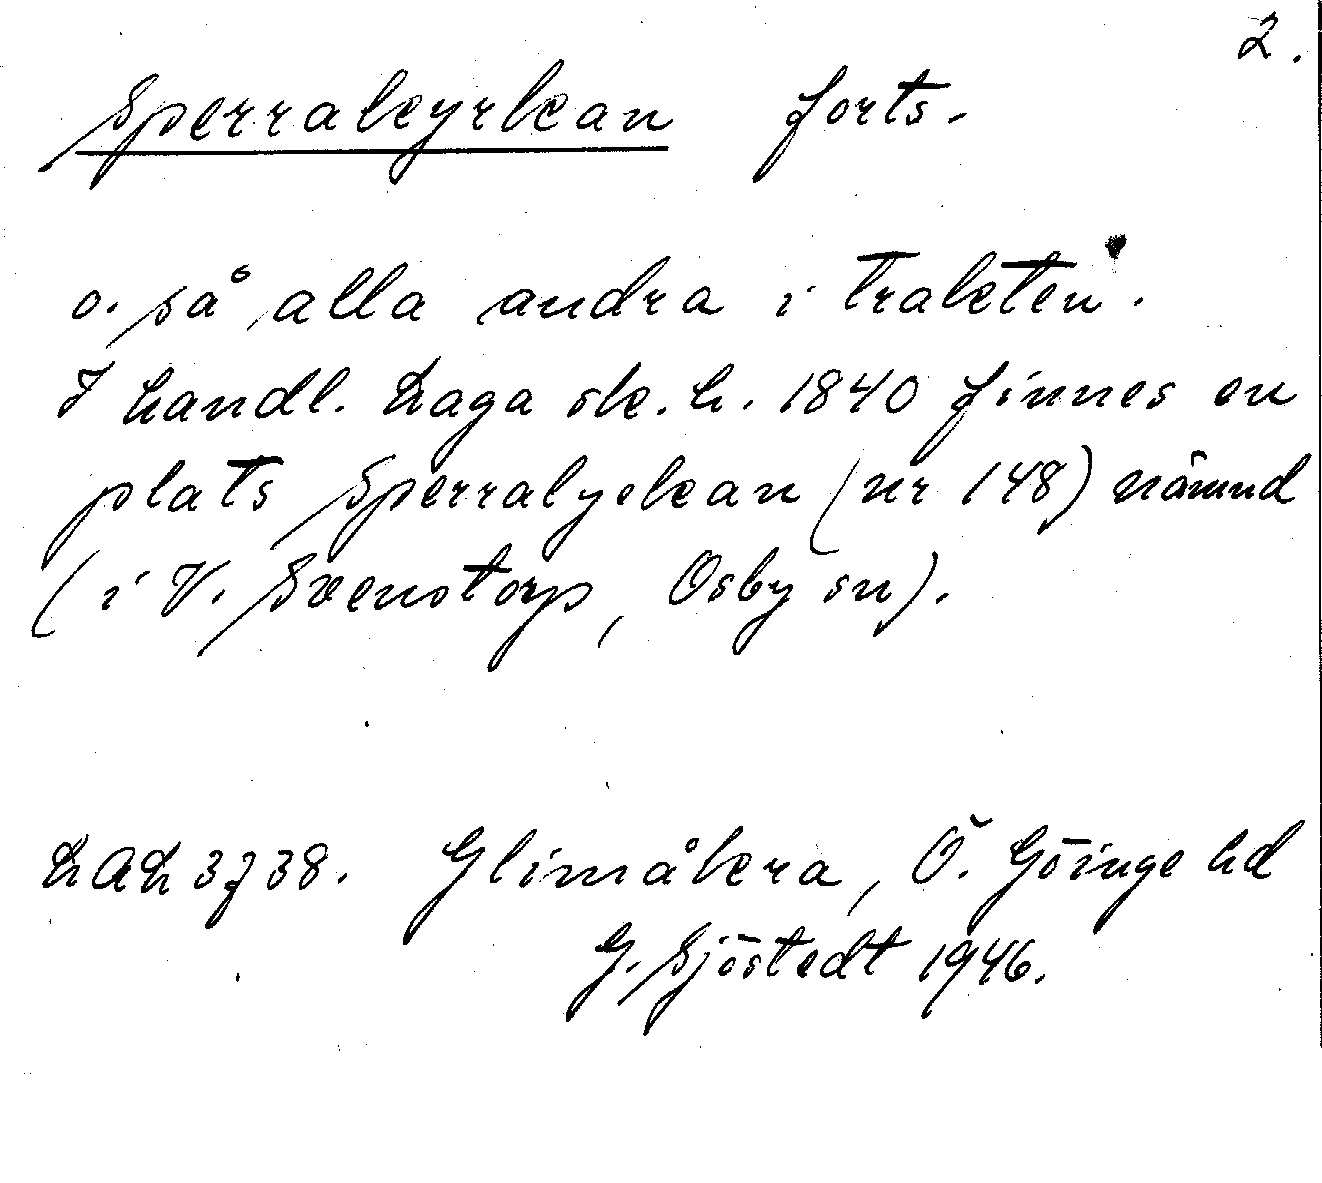 2.
Sperrakyrkan forts.
o. så alla andra i trakten".
I Landl. Laga sk. h. 1840 finnes en
plats Sperralyckan (nr 148) nämnd
(i V. Svenstorp, Osby sn).
LAL 3738. Glimåkra, Ö. Göinge hd
G. Sjöstedt 1946.